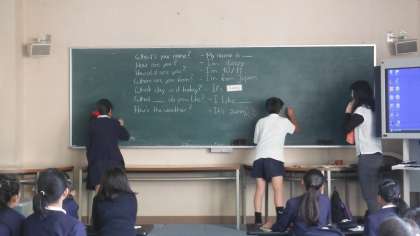 What's your name? - My name is ___
How are you? - I'm
How old are you? - I'm
Where are you from? - I'm from Japan
What day is it today? - It's
What ___ do you like? - I like ___
How's the weather? - It's sunny